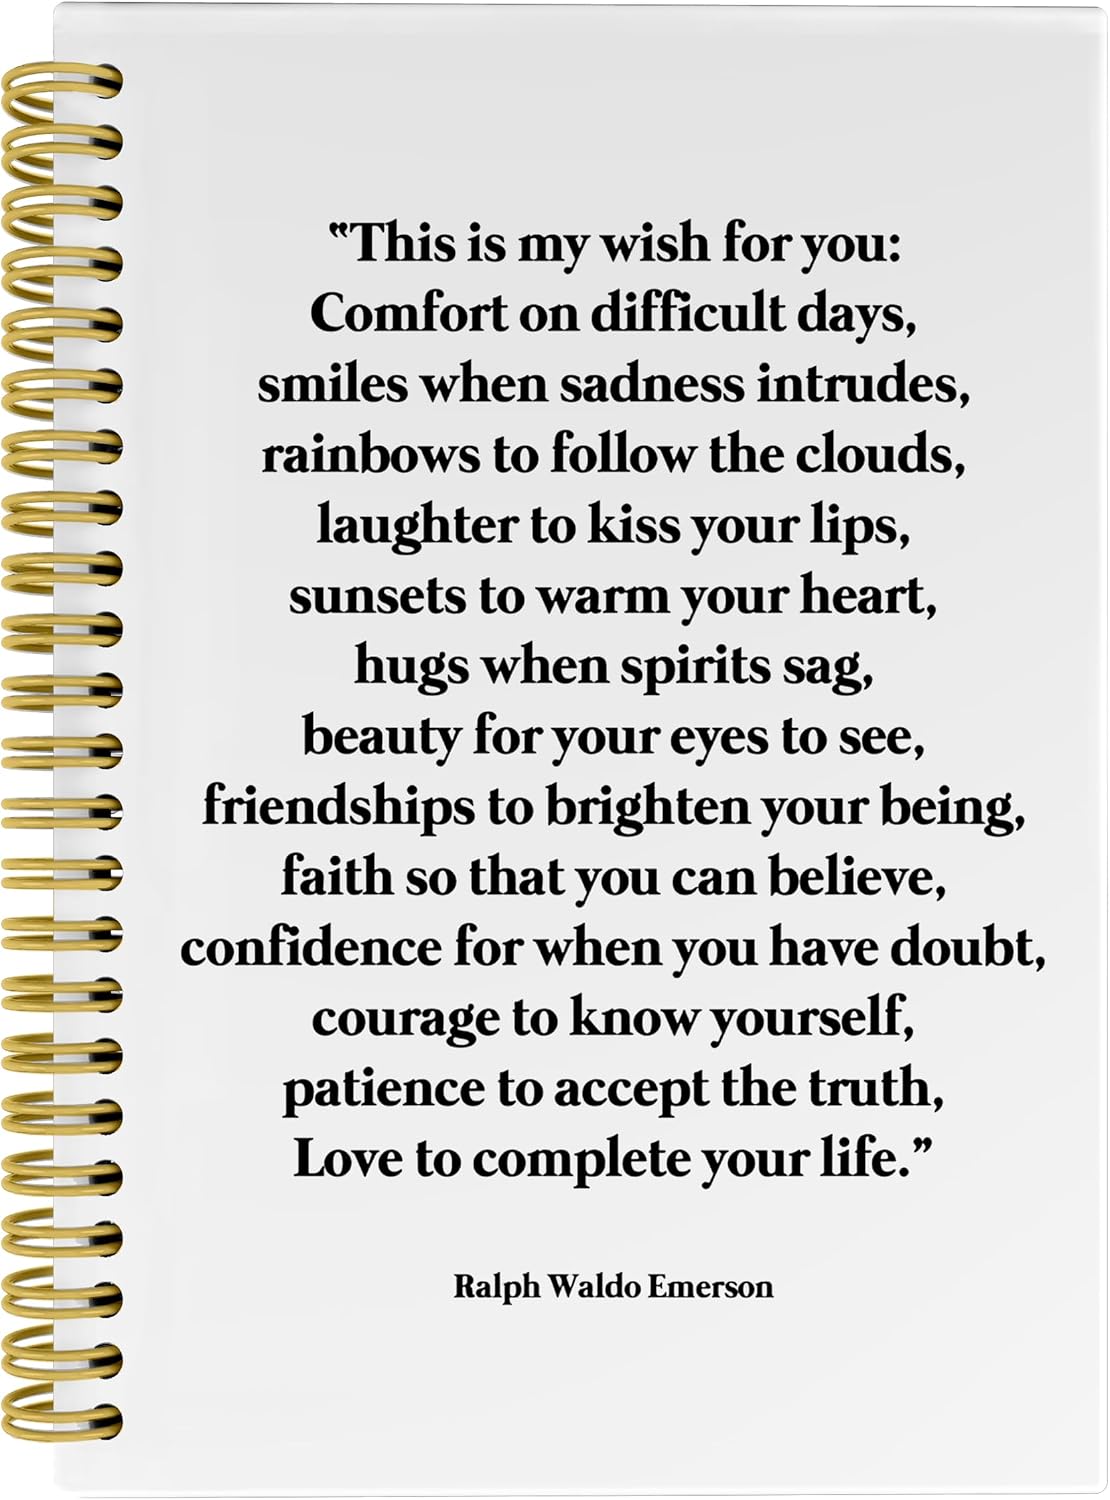 “This is my wish for you:
Comfort on difficult days,
smiles when sadness intrudes,
rainbows to follow the clouds,
laughter to kiss your lips,
sunsets to warm your heart,
hugs when spirits sag,
beauty for your eyes to see,
friendships to brighten your being,
faith so that you can believe,
confidence for when you have doubt,
courage to know yourself,
patience to accept the truth,
Love to complete your life.”
Ralph Waldo Emerson